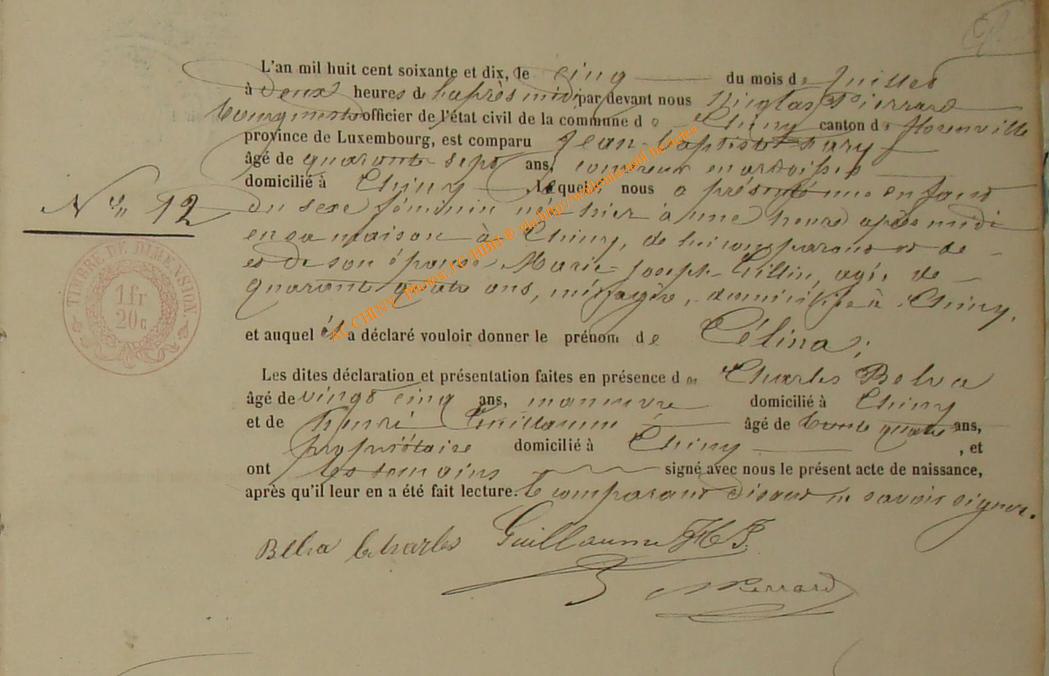 L'an mil huit cent soixante et dix, le cinq du mois de Juillet
à deux heures de l'après midi par devant nous Nicolas Pierrard
bourgmestre officier de l'état civil de la commune de Chiny canton de Florenville
province de Luxembourg, est comparu Jean Baptiste
âgé de quarante sept ans, couvreur en ardoises
domicilié à Chiny lequel nous a présenté une enfant
Nº 12
du sexe féminin née hier à une heure après midi
en sa maison à Chiny, de lui comparant et de
et de son épouse Marie Joseph agée de
quarante quatre ans, ménagère, domiciliée à Chiny,
TIMBRE DE DIMENSION
1fr
20c
et auquel il a déclaré vouloir donner le prénom de Célina;
Les dites déclaration et présentation faites en présence de Charles Belva
âgé de vingt cinq ans, manœuvre domicilié à Chiny
et de Henri Guillaume âgé de trente quatre ans,
propriétaire domicilié à Chiny, et
ont les témoins signé avec nous le présent acte de naissance,
après qu'il leur en a été fait lecture. le comparant disant ne savoir signer.
Belva Charles Guillaume HJ
NPierrard